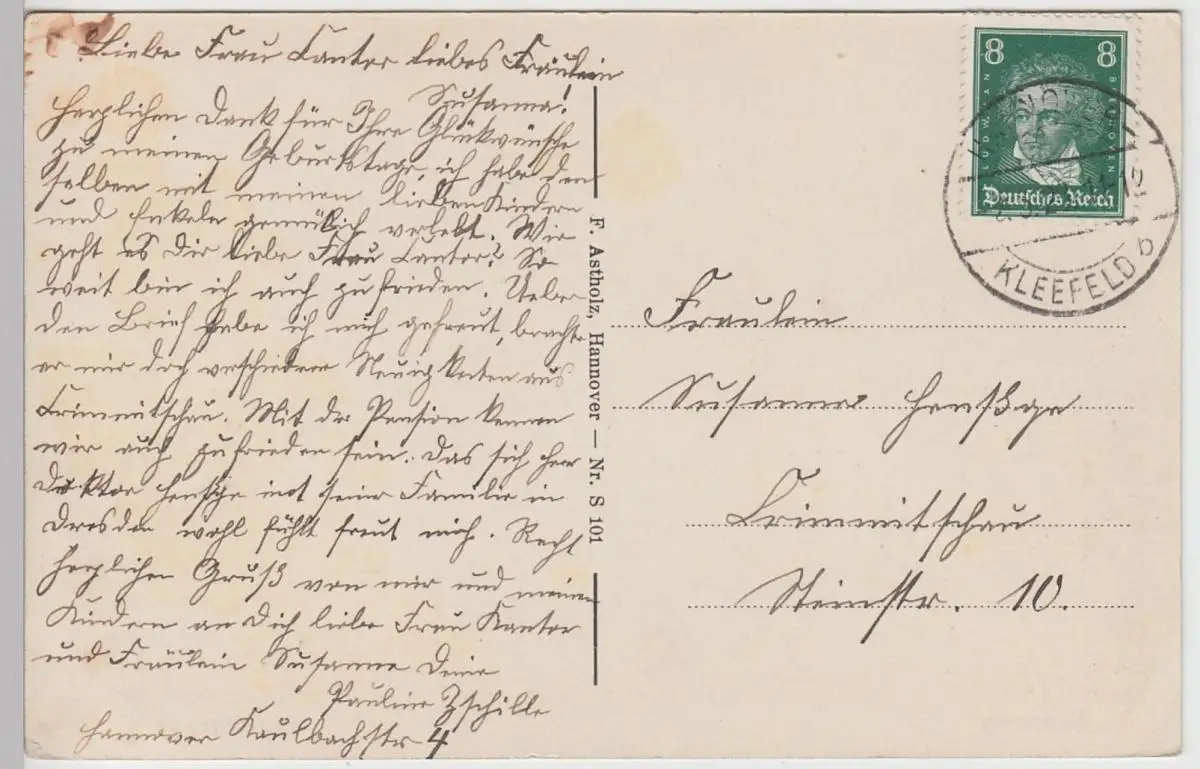 Liebe Frau Cantor liebes Fräulein
Susanna!
Herzlichen Dank für Ihre Glückwünsche
zu meinem Geburtstage, ich habe den
selben mit meinen lieben Kindern
und Enkeln gemütlich verlebt. Wie
geht es Dir liebe Frau Cantor? So
weit bin ich auch zufrieden. Ueber
den Brief habe ich mich gefreut, brachte
er mir doch verschiedene Neuigkeiten aus
Crimmitschau. Mit der Pension können
wir auch zufrieden sein. Das sich Herr
Doktor Henßge mit seiner Familie in
Dresden wohl fühlt freut mich. Recht
herzlichen Gruß von mir und meinen
Kindern an Dich liebe Frau Kantor
und Fräulein Susanne Deine
Pauline Zschille
Hannover Kaulbachstr 4
F. Astholz, Hannover — Nr. S 101
8 8
LUDW. VAN BEETHOVEN
Deutsches Reich
KLEEFELD b
Fräulein
Susanne Henßge
Crimmitschau
Steinstr. 10.